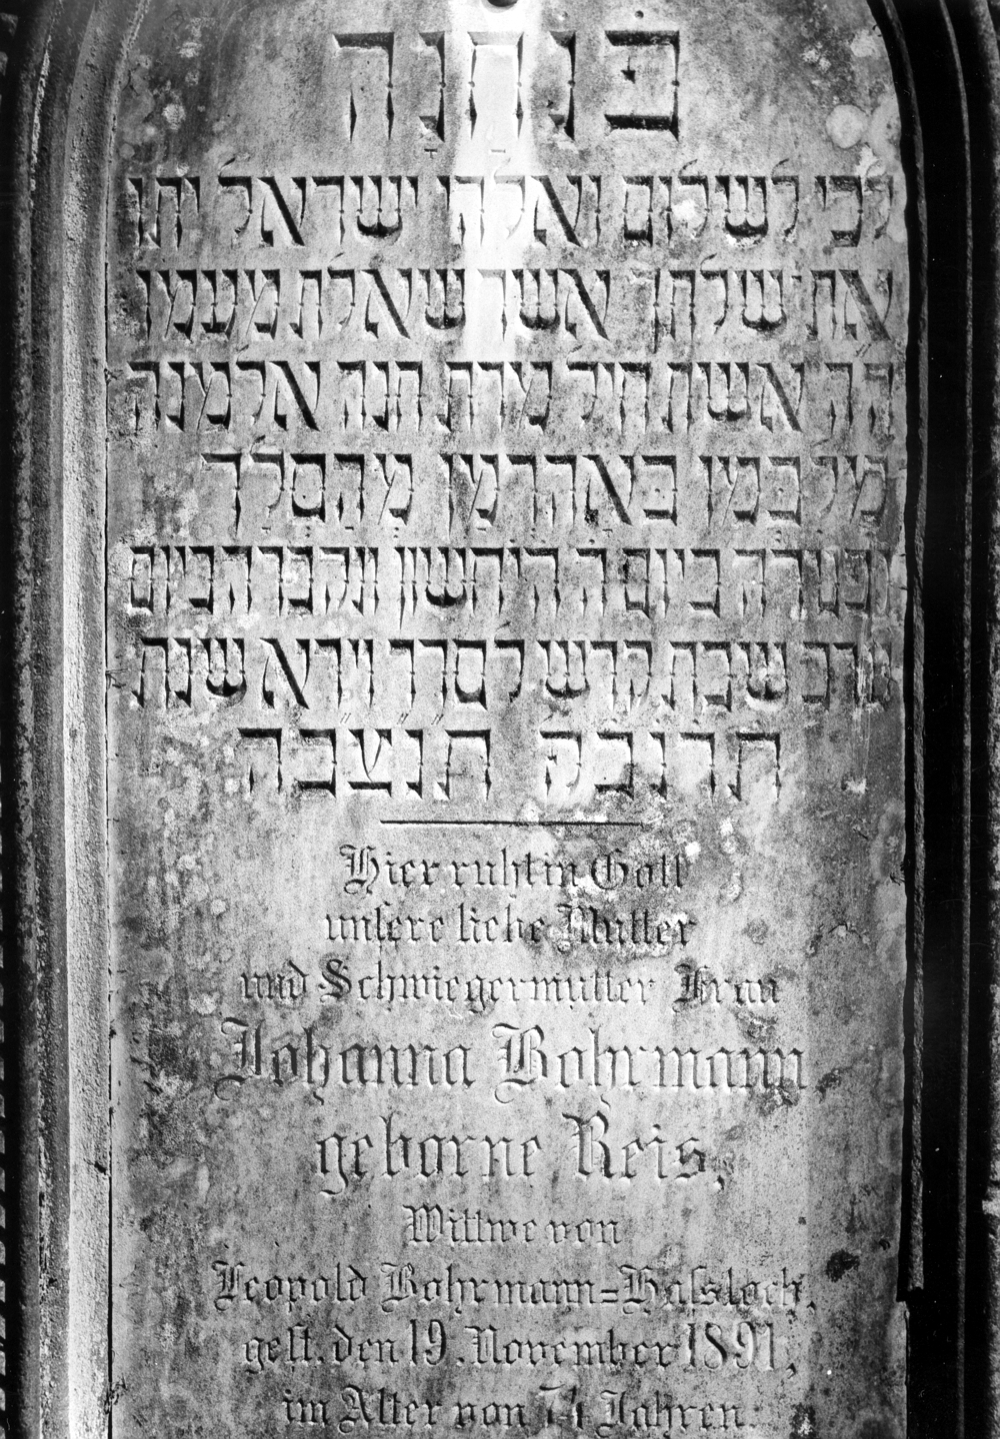 פּנ חנה
לכי לשלום ואלהי ישראל יתן
את שלתך אשר שאלת מעמו
ה״ה אשת חיל מרת חנה אלמנת
בנימן בּאהרמן מהסלך
נפטרה ביום ה׳ חי חשון ונקברה ביום
ערב שבת קדש לסדר וירא שנת
תרנב לק תנצבה
Hier ruht in Gott
unsere liebe Mutter
und Schwiegermutter Frau
Johanna Bohrmann
geborne Reis,
Wittwe von
Leopold Bohrmann=Hassloch,
gest. den 19. November 1891,
im Alter von 74 Jahren.